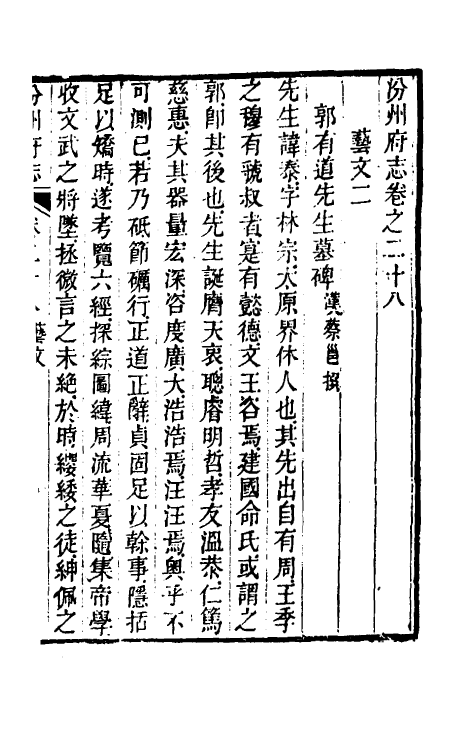 汾州府志卷之二十八
藝文二
郭有道先生墓碑 漢蔡邕撰
先生諱泰字林宗太原界休人也其先出自有周王季
之穆有虢叔者寔有懿德文王咨焉建國命氏或謂之
郭即其後也先生誕膺天衷聰睿明哲孝友溫恭仁篤
慈惠夫其器量宏深咨度廣大浩浩焉汪汪焉奧乎不
可測已若乃砥節礪行正道正辭貞固足以幹事隱括
足以矯時遂考覽六經探綜圖緯周流華夏隨集帝學
收文武之將墜拯微言之未絕於時纓緌之徒紳佩之
汾州府志 卷二十八 藝文